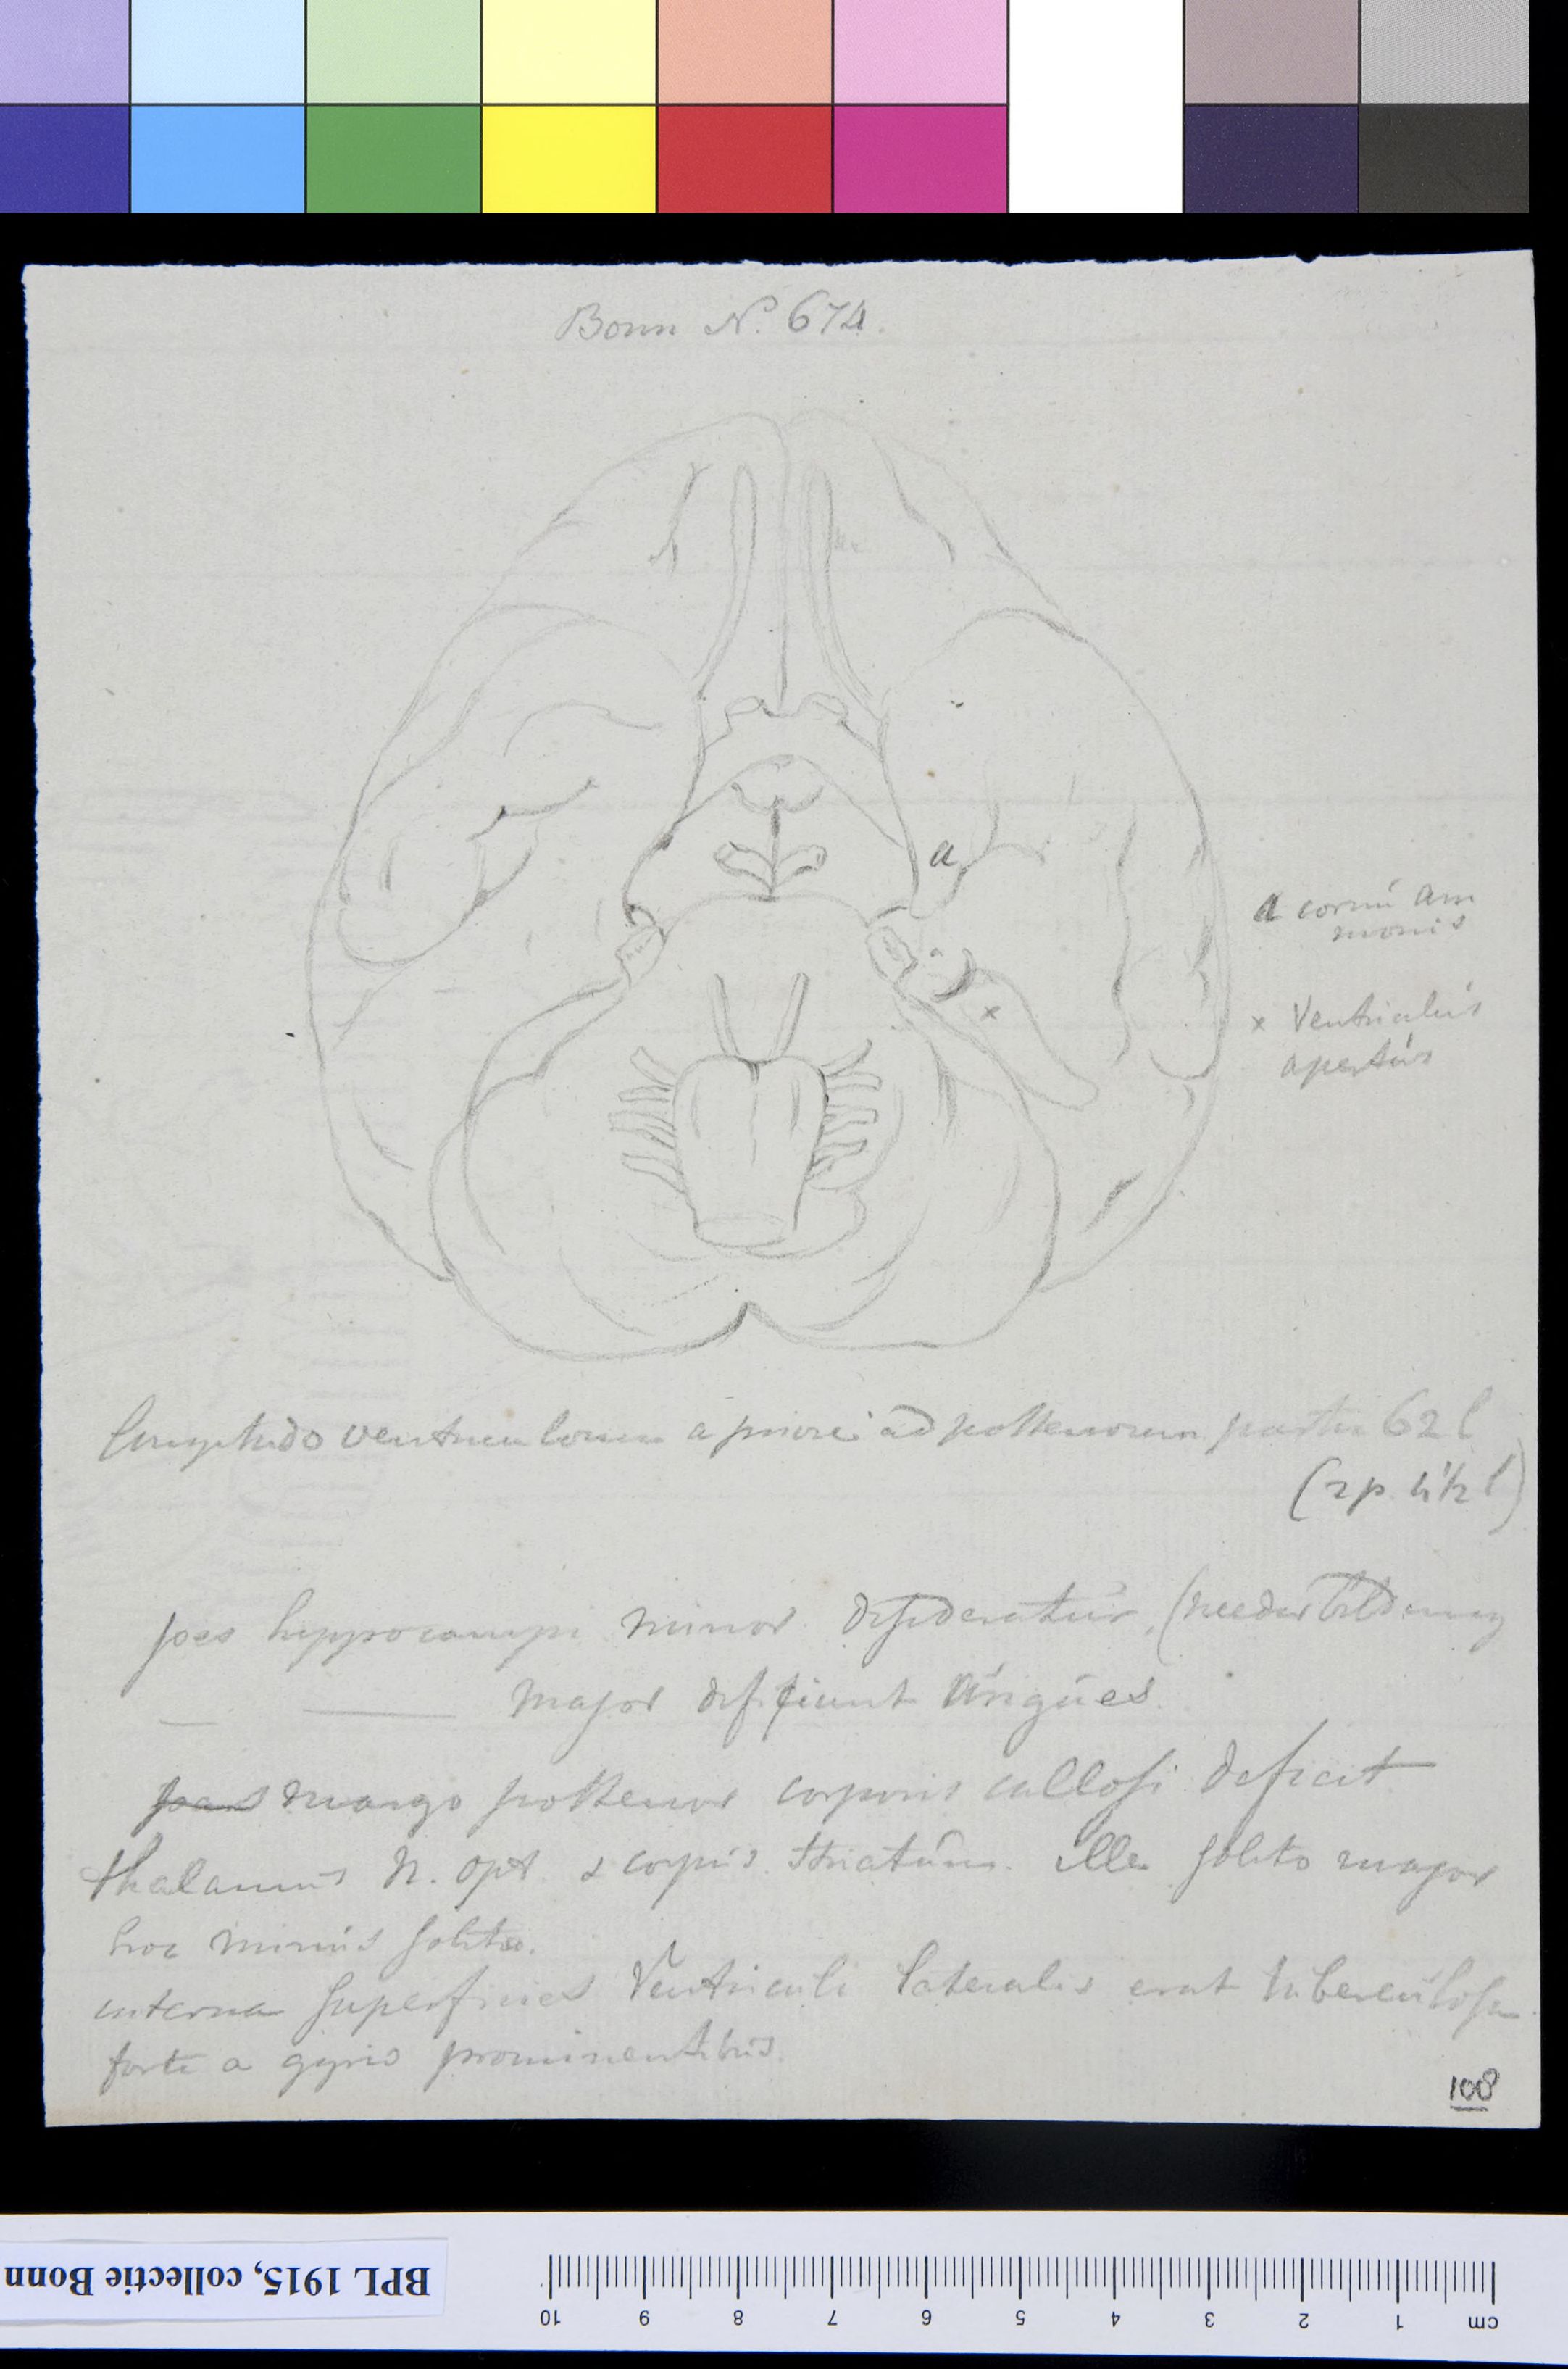 Bonn No. 674.
a
a cornu am
monis
x
x Ventriculus
apertus
longitudo ventriculorum a priori ad posteriorem partem 62 l
(2 p.
pes hippocampi minor desideratur,
major deficiunt ungues.
pes margo posterior corporis callosi deficit
thalamus N. opt. & corpus striatum. ille solito major
hoc minus solito.
interna superficies Ventriculi lateralis erat tuberculosa
forte a gyris prominentibus.
108
BPL 1915, collectie Bonn
10 9 8 7 6 5 4 3 2 1 cm